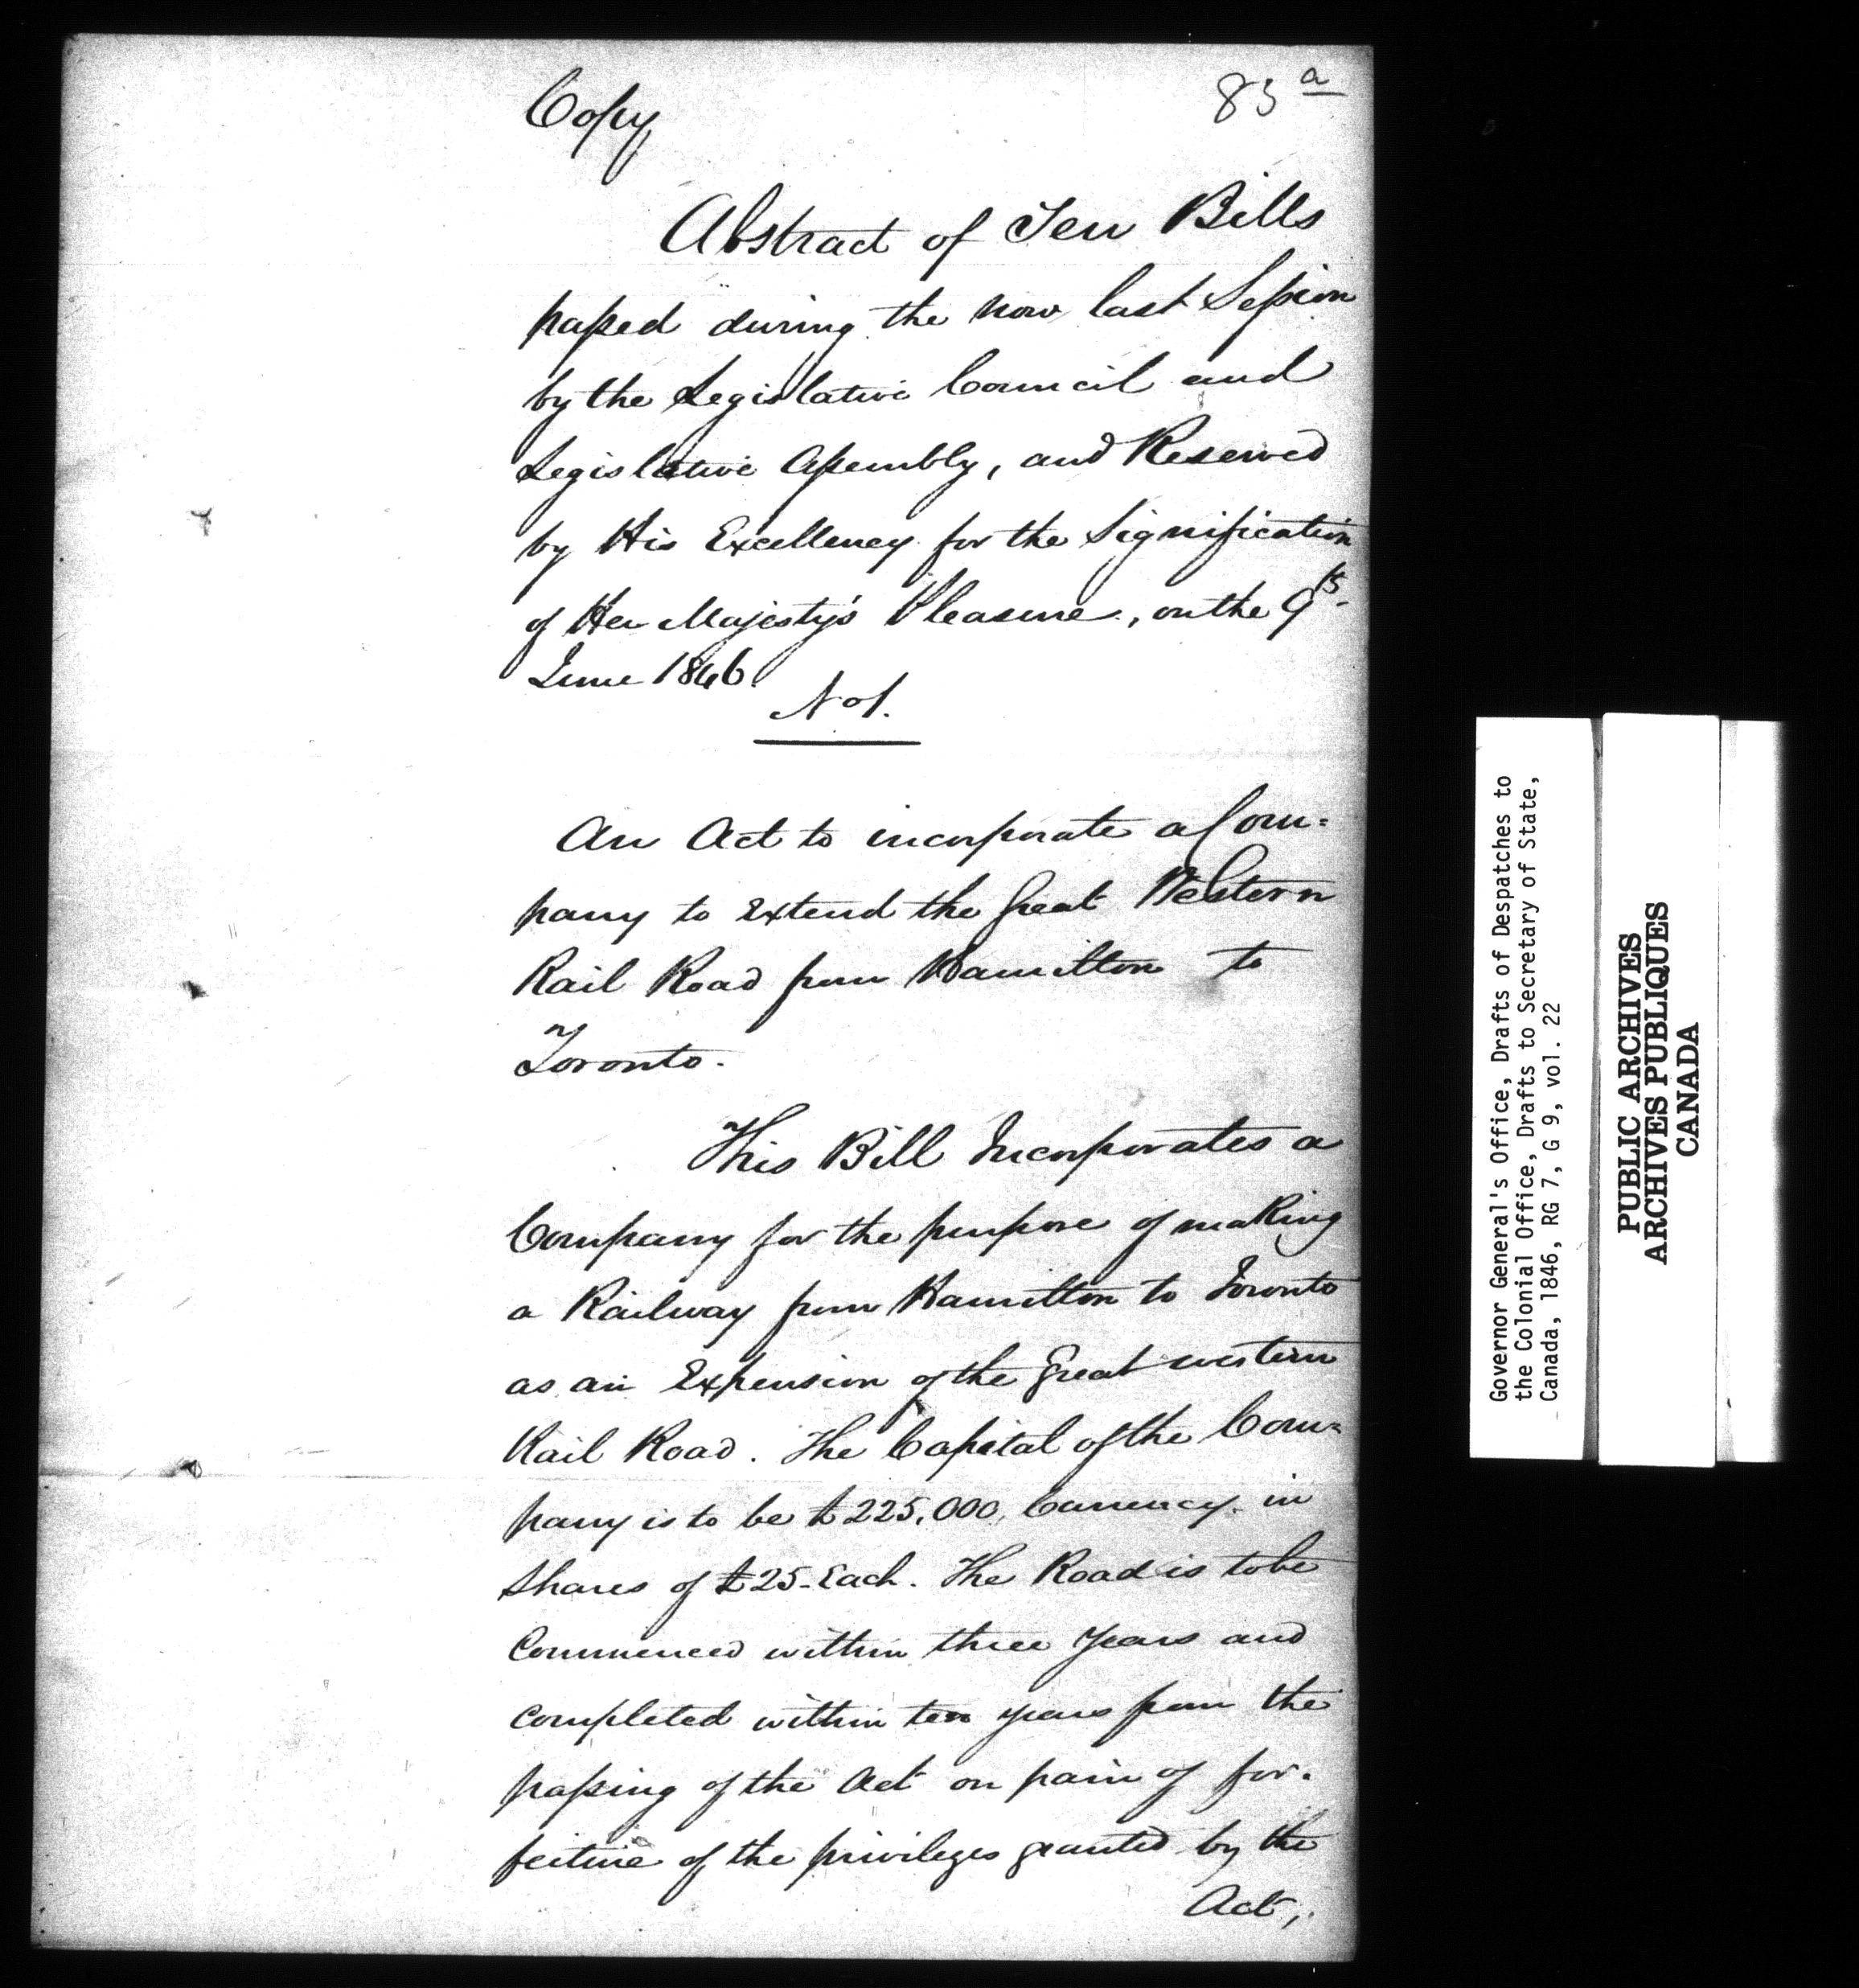 Copy
83 a
Abstract of Ten Bills
passed during the now last Session
by the Legislative Council and
Legislative Assembly, and Reserved
by His Excellency for the Signification
of Her Majesty's Pleasure, on the 9th
June 1846.
No 1.
An Act to incorporate a Com=
pany to extend the Great Western
Rail Road from Hamilton to
Toronto.
This Bill Incorporates a
Company for the purpose of making
a Railway from Hamilton to Toronto
as an Expension of the Great western
Rail Road. The Capital of the Com=
pany is to be £225,000, Currency in
Shares of £25- Each. The Road is to be
Commenced within three years and
completed within ten years from the
passing of the Act on pain of for-
feiture of the privileges granted by the
Act,
Governor General's Office, Drafts of Despatches to
the Colonial Office, Drafts to Secretary of State,
Canada, 1846, RG 7, G 9, vol. 22
PUBLIC ARCHIVES
ARCHIVES PUBLIQUES
CANADA